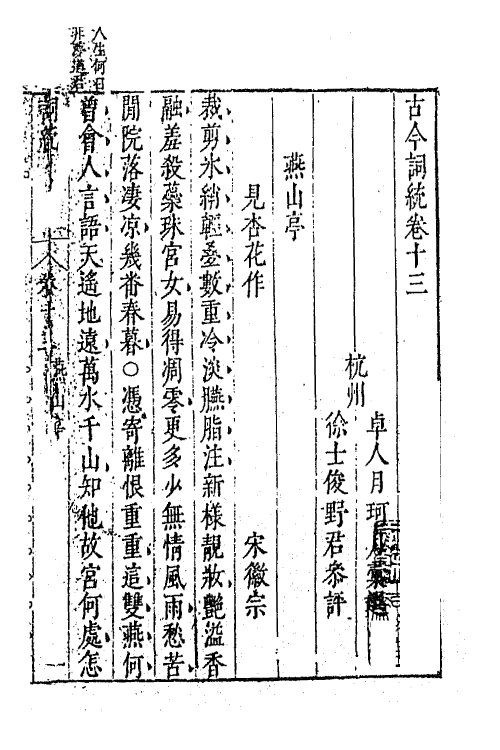 古今詞統卷十三
杭州
卓人月珂月彙選
徐士俊野君參評
燕山亭
見杏花作
宋徽宗
裁剪氷綃輕疊數重冷淡臙脂注新樣靚妝艷溢香
融羞殺蘂珠宮女易得凋零更多少無情風雨愁苦
閒院落凄凉幾畨春暮○憑寄離恨重重這雙燕何
曾會人言語天遙地遠萬水千山知他故宮何處怎
人生何日
非夢道君
詞統
卷十三
燕山亭
一